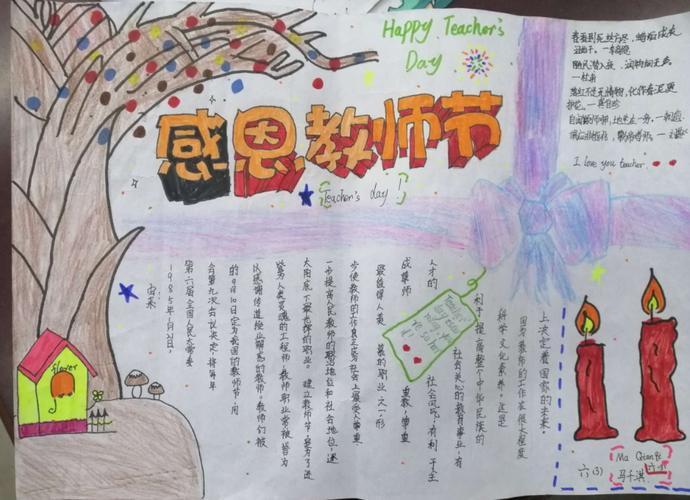 Happy Teacher's
Day
感恩教师节
Teacher's day!
春蚕到死丝方尽，蜡炬成灰
随风潜入夜，润物细无声。
一杜甫
落红不是无情物，化作春泥更
护花。一龚自珍
I love you teacher.
flower
由来：
1985年1月21日，
第六届全国人民代大常委
会第九次会议决定将每年
的9月10日定为我国的教师节，用
以感谢传道授业解惑的教师。教师们被
誉为人类灵魂的工程师，教师职业常被誉为
太阳底下最光辉的职业。建立教师节，要为了进
一步提高人民教师的政治地位和社会地位，逐
步使教师的工作真正成为社会上最受人尊重
最值得人羡慕的职业之一，形
成尊师重教，尊重
人才的社会风气，有利于
社会关心的教育事业，有
利于提高整个中华民族的
科学文化素养。这是
因为教师的工作在很大程度
上决定着国家的未来。
六(3)
马千淇
六小